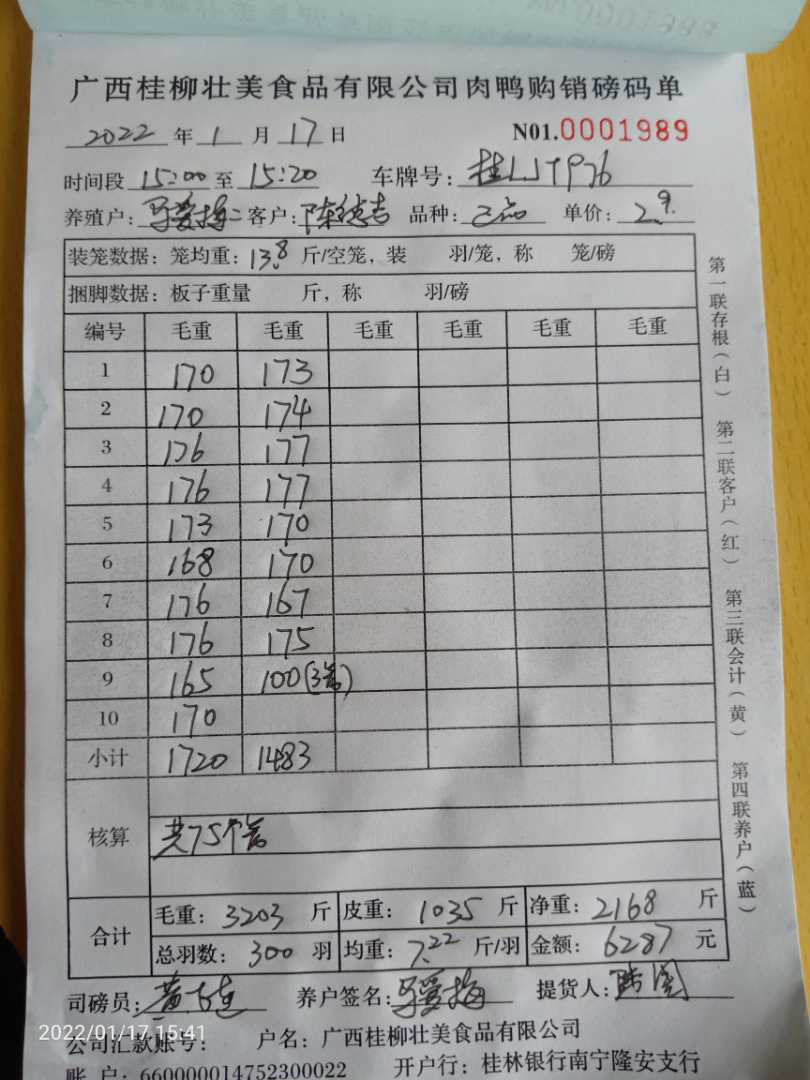 广西桂柳壮美食品有限公司肉鸭购销磅码单
2022 年 1 月 17 日 N01.0001989
时间段 15:00 至 15:20 车牌号: 桂
养殖户: 客户: 品种: 单价: 2.9
装笼数据: 笼均重: 13.8 斤/空笼, 装 羽/笼, 称 笼/磅
捆脚数据: 板子重量 斤, 称 羽/磅
编号 毛重 毛重 毛重 毛重 毛重 毛重
1 170 173
2 170 174
3 176 177
4 176 177
5 173 170
6 168 170
7 176 167
8 176 175
9 165 100(3笼)
10 170
小计 1720 1483
核算 共75个笼
合计 毛重: 3203 斤 皮重: 1035 斤 净重: 2168 斤
总羽数: 300 羽 均重: 7.22 斤/羽 金额: 6287 元
司磅员: 养户签名: 提货人:
公司汇款账号: 户名: 广西桂柳壮美食品有限公司
账 户: 660000014752300022 开户行: 桂林银行南宁隆安支行
第一联存根(白) 第二联客户(红) 第三联会计(黄) 第四联养户(蓝)
2022/01/17 15:41